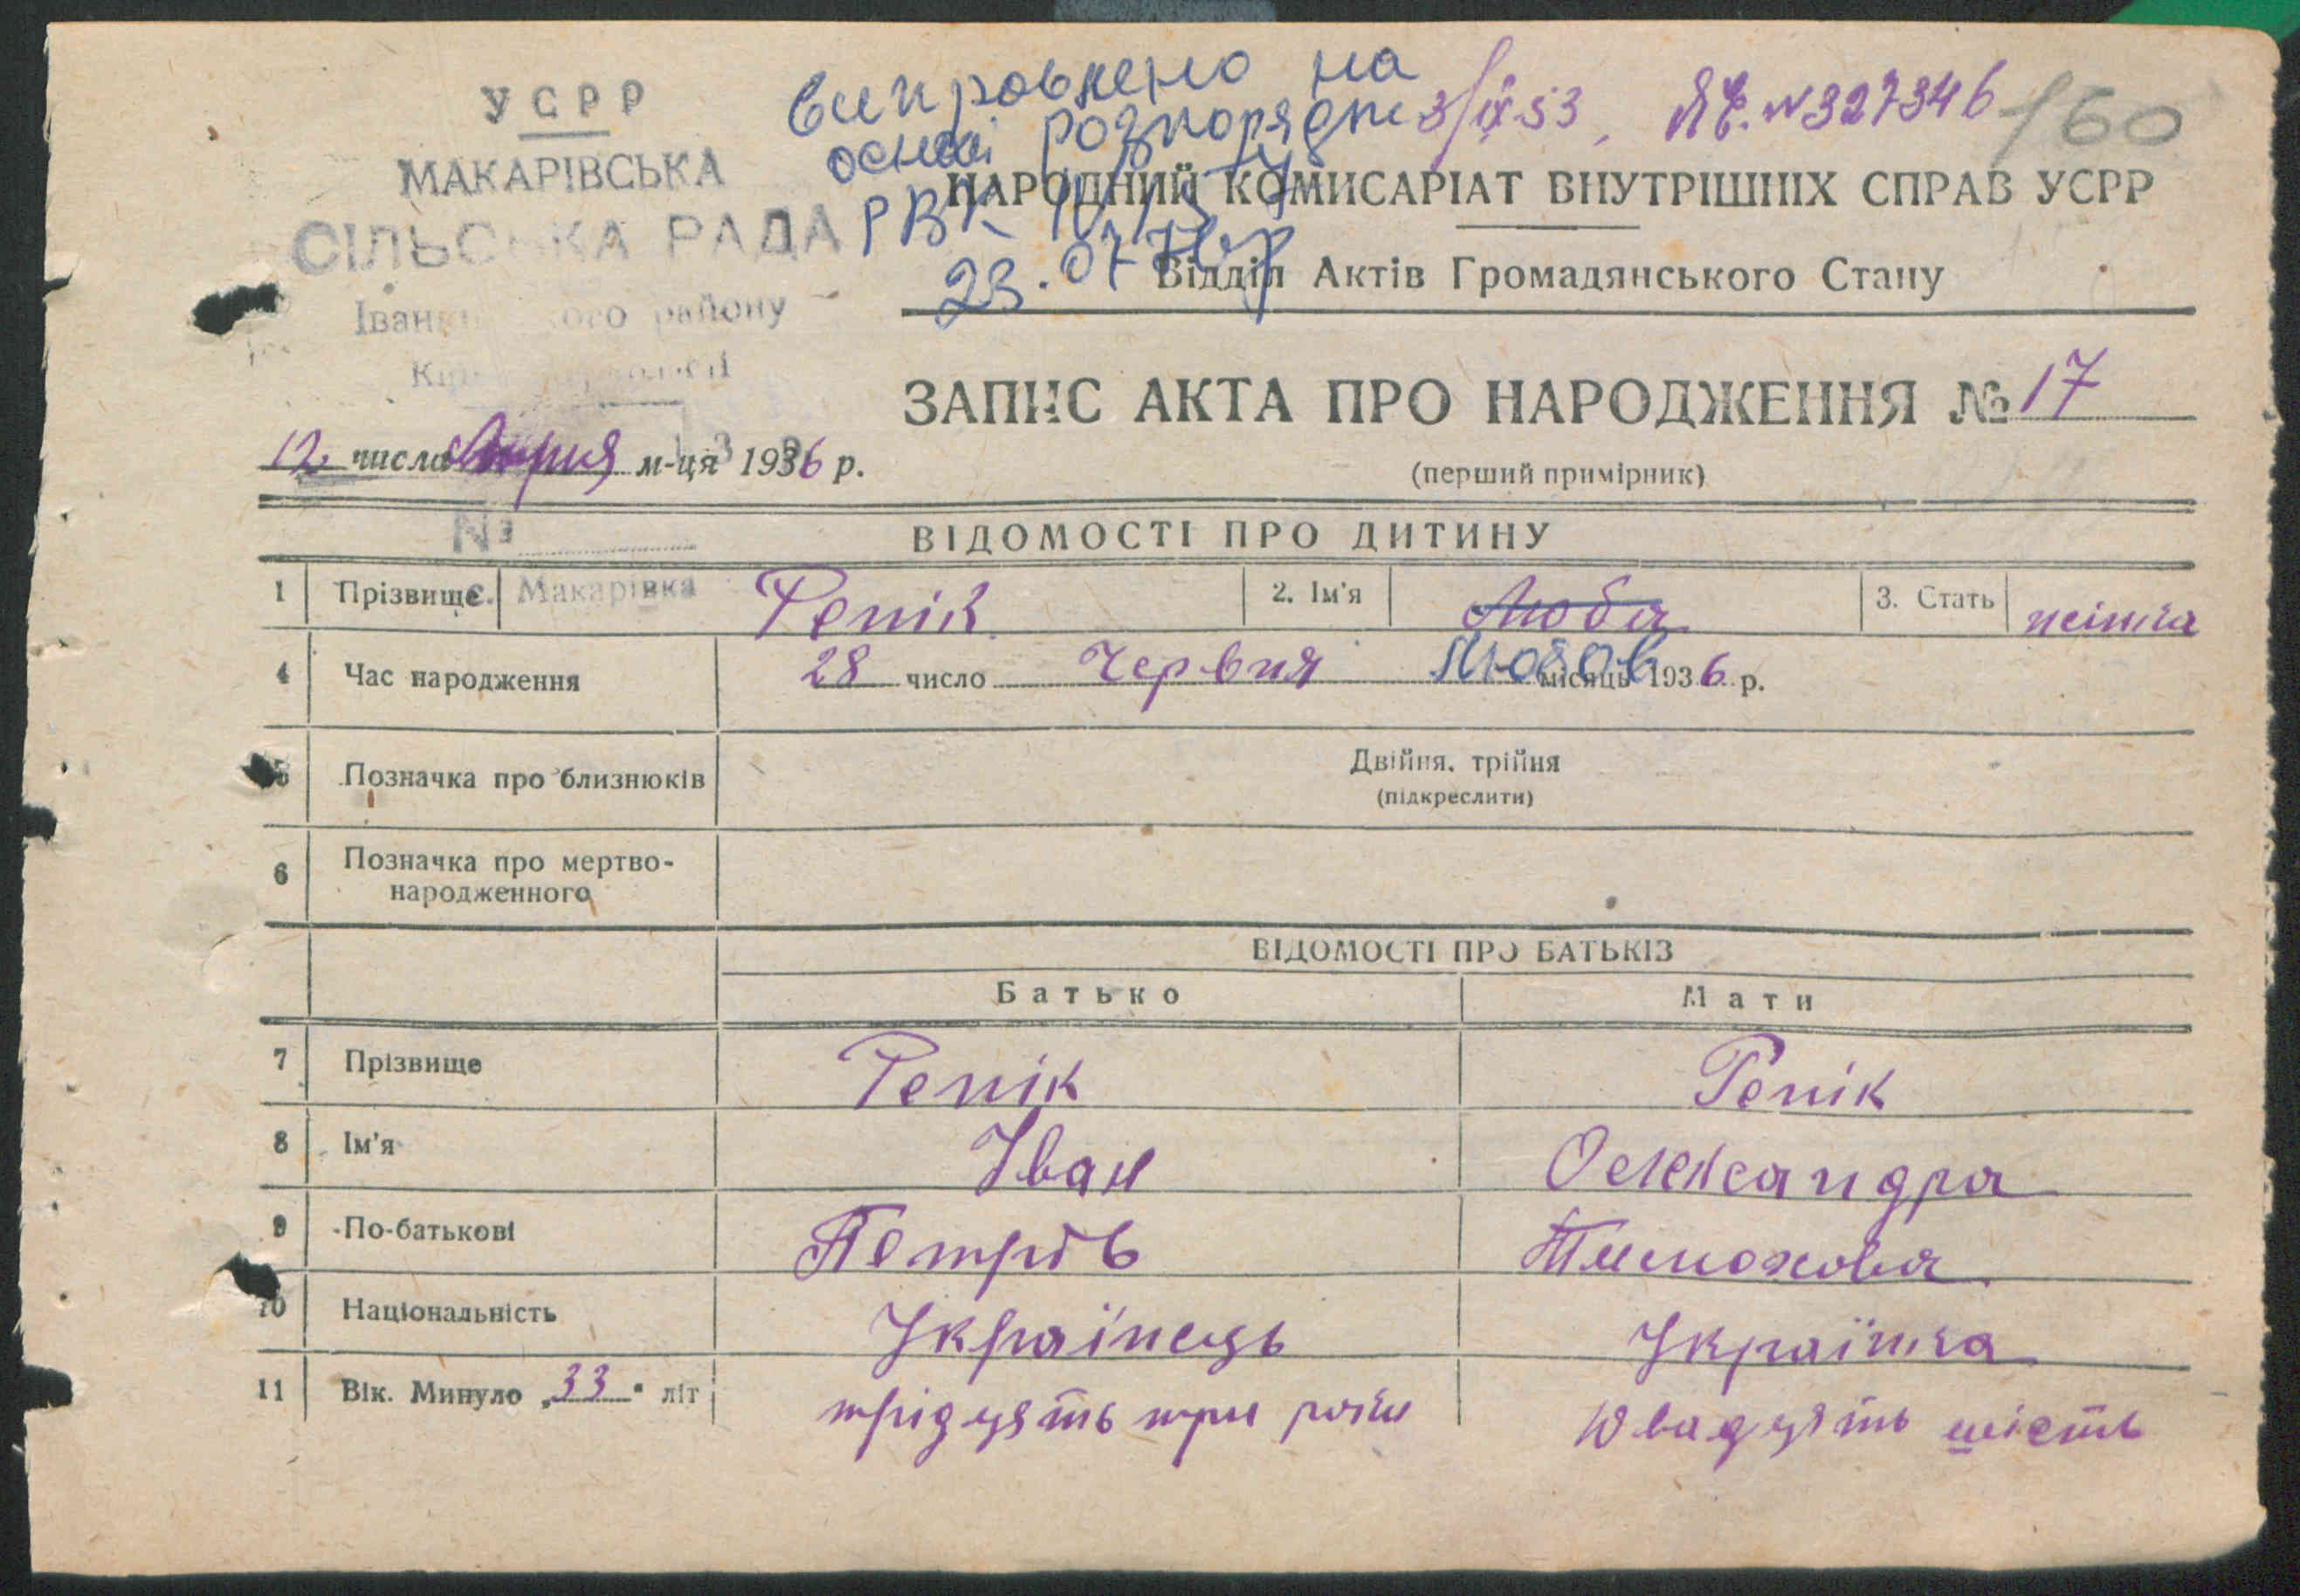 УСРР
МАКАРІВСЬКА
СІЛЬСЬКА РАДА
району
виправлено на
основі розпорядж
РВК
23.07
3/IX-53, ЯЄ. № 327346
160
НАРОДНИЙ КОМИСАРІАТ ВНУТРІШНІХ СПРАВ УСРР
Відділ Актів Громадянського Стану
ЗАПИС АКТА ПРО НАРОДЖЕННЯ № 17
12 числа м-ця 1936 р.
(перший примірник)
№
ВІДОМОСТІ ПРО ДИТИНУ
1 Прізвище с. Макарівка Репік 2. Ім'я Люба 3. Стать жінка
Любов
4 Час народження 28 число Червня місяць 1936 р.
5 Позначка про близнюків Двійня, трійня
(підкреслити)
6 Позначка про мертво-
народженного
ВІДОМОСТІ ПРО БАТЬКІВ
Батько Мати
7 Прізвище Репік Репік
8 Ім'я Іван Олександра
9 По-батькові Петрів Тимохова
10 Національність Українець Українка
11 Вік. Минуло „33" літ трідцять три роки Двадцять шість